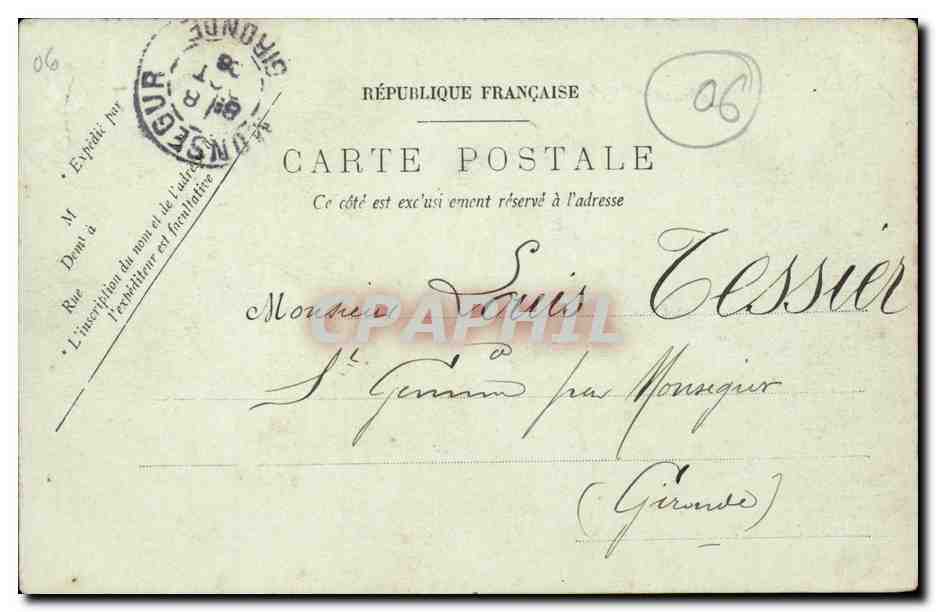 06
06
MONSEGUR
GIRONDE
RÉPUBLIQUE FRANÇAISE
CARTE POSTALE
Ce côté est exclusivement réservé à l'adresse
Expédié par
M
Demt à
Rue
L'inscription du nom et de l'adresse de
l'expéditeur est facultative
Monsieur Louis Tessier
CPAPHIL
St Gemme par Monsegur
(Gironde)